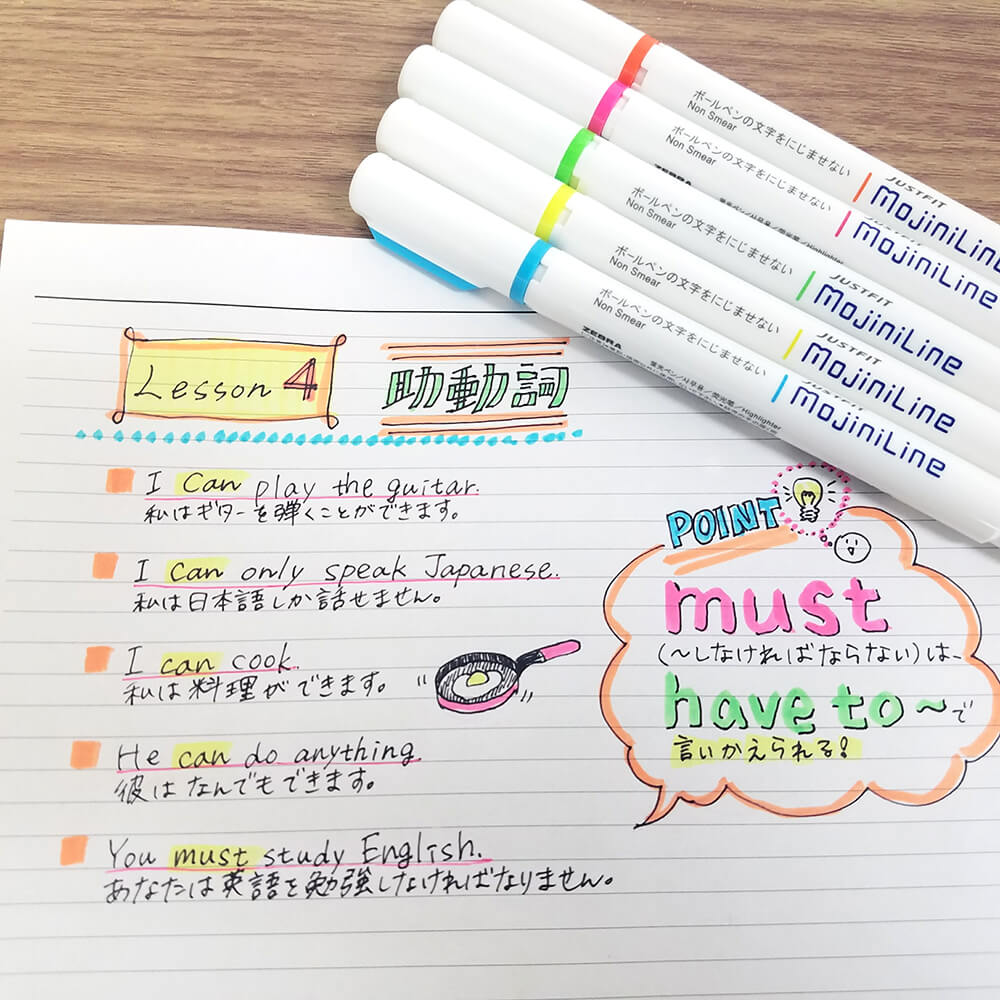 ボールペンの文字をにじませない
Non Smear
JUSTFIT
mojiniLine
ボールペンの文字をにじませない
Non Smear
ZEBRA
JUSTFIT
mojiniLine
ボールペンの文字をにじませない
Non Smear
JUSTFIT
mojiniLine
ボールペンの文字をにじませない
Non Smear
JUSTFIT
mojiniLine
ボールペンの文字をにじませない
Non Smear
ZEBRA
蛍光ペン/사무용/荧光笔/Highlighter
mojiniLine
Lesson 4 助動詞
I can play the guitar.
私はギターを弾くことができます。
I can only speak Japanese.
私は日本語しか話せません。
I can cook.
私は料理ができます。
He can do anything.
彼はなんでもできます。
You must study English.
あなたは英語を勉強しなければなりません。
POINT
must
(〜しなければならない)は、
have to 〜で
言いかえられる!